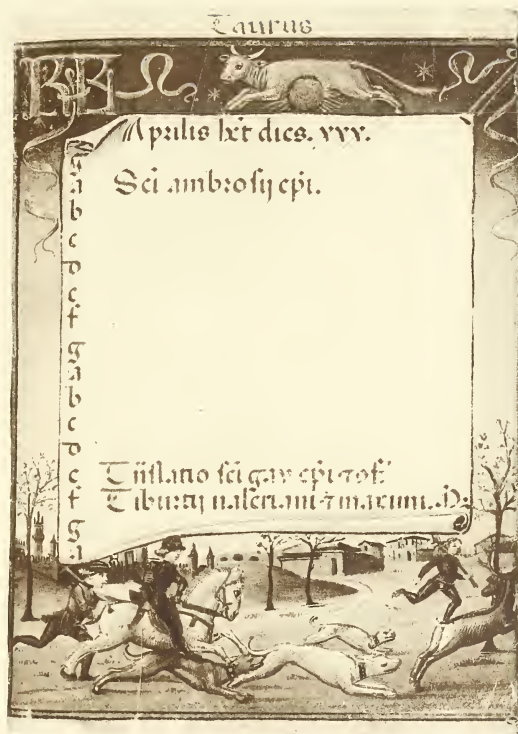 Taurus
KL
Aprilis hēt dies. xxx.
g
a Sci ambrosij epi.
b
c
d
e
f
g
a
b
c
d
e Trāslatio sci epi ⁊ of.
f Tiburtij ualeriani ⁊ maximi. M.
g
a